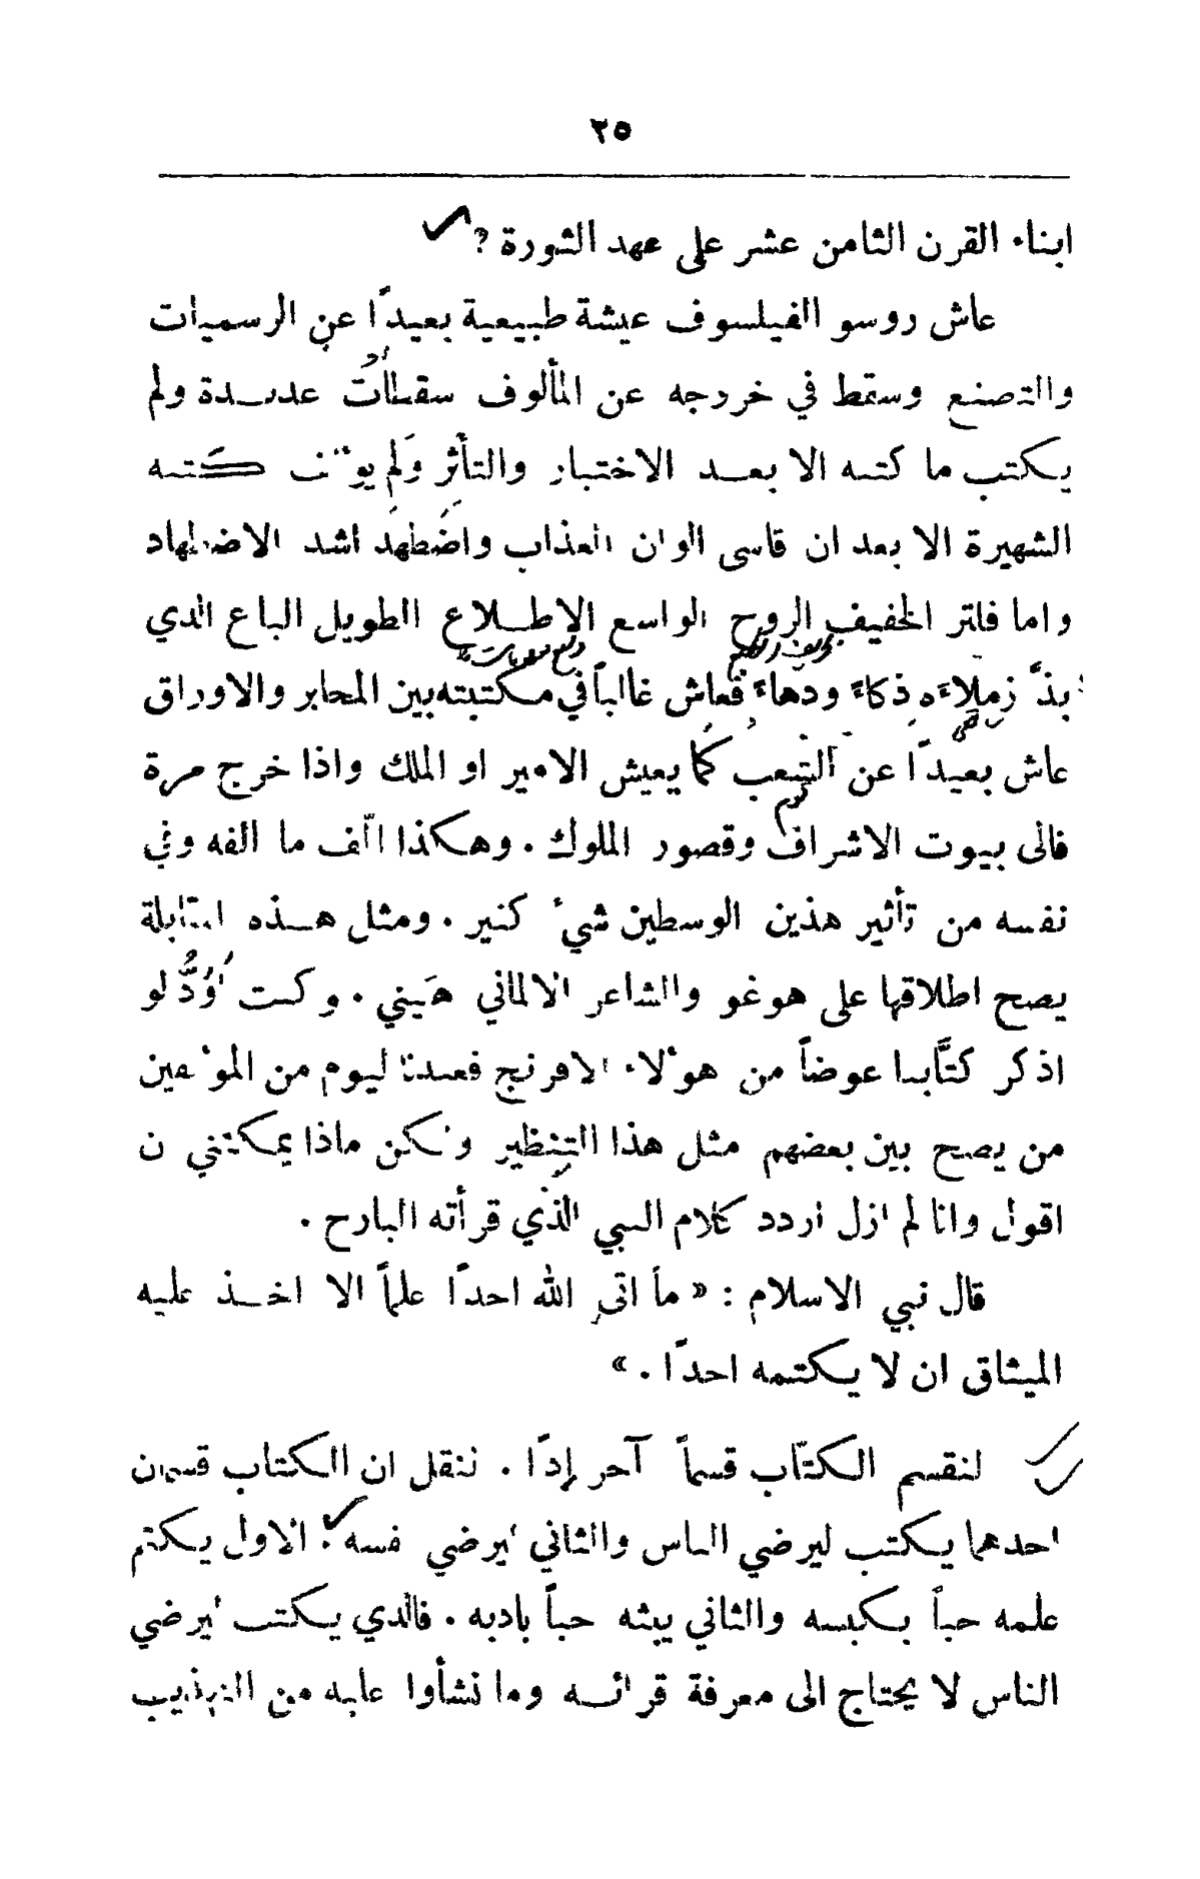 ٢٥
ابناء القرن الثامن عشر على عهد الثورة ؟
عاش روسو الفيلسوف عيشة طبيعية بعيدًا عن الرسميات
والتصنع وسقط في خروجه عن المألوف سقطات عديدة ولم
يكتب ما كتبه الا بعد الاختبار والتأثر ولم يؤلف كتبه
الشهيرة الا بعد ان قاسى الوان العذاب واضطهد اشد الاضطهاد
واما فلتر الخفيف الروح الواسع الاطلاع الطويل الباع الذي
بذَّ زملاءَه ذكاءً ودهاءً فعاش غالباً في مكتبته بين المحابر والاوراق
عاش بعيدًا عن الشعب كما يعيش الامير او الملك واذا خرج مرة
فالى بيوت الاشراف وقصور الملوك . وهكذا الّف ما الفه وفي
نفسه من تأثير هذين الوسطين شيء كثير . ومثل هذه المقابلة
يصح اطلاقها على هوغو والشاعر الالماني هَيني . وكنت اوَدُّ لو
اذكر كتَّابنا عوضاً من هؤلاء الافرنج فعندنا اليوم من المؤلفين
من يصح بين بعضهم مثل هذا التنظير ولكن ماذا يمكنني ان
اقول وانا لم ازل اردد كلام النبي الذي قرأته البارح .
قال نبي الاسلام : « ما اتى الله احدًا علماً الا اخذ عليه
الميثاق ان لا يكتمه احدًا . »
لنقسم الكتّاب قسماً آخر إذًا . لنقل ان الكتاب قسمان
احدهما يكتب ليرضي الناس والثاني ليرضي نفسه . الاول يكتم
علمه حباً بكيسه والثاني يبثه حباً بادبه . فالذي يكتب ليرضي
الناس لا يحتاج الى معرفة قرائه وما نشأوا عليه من التهذيب